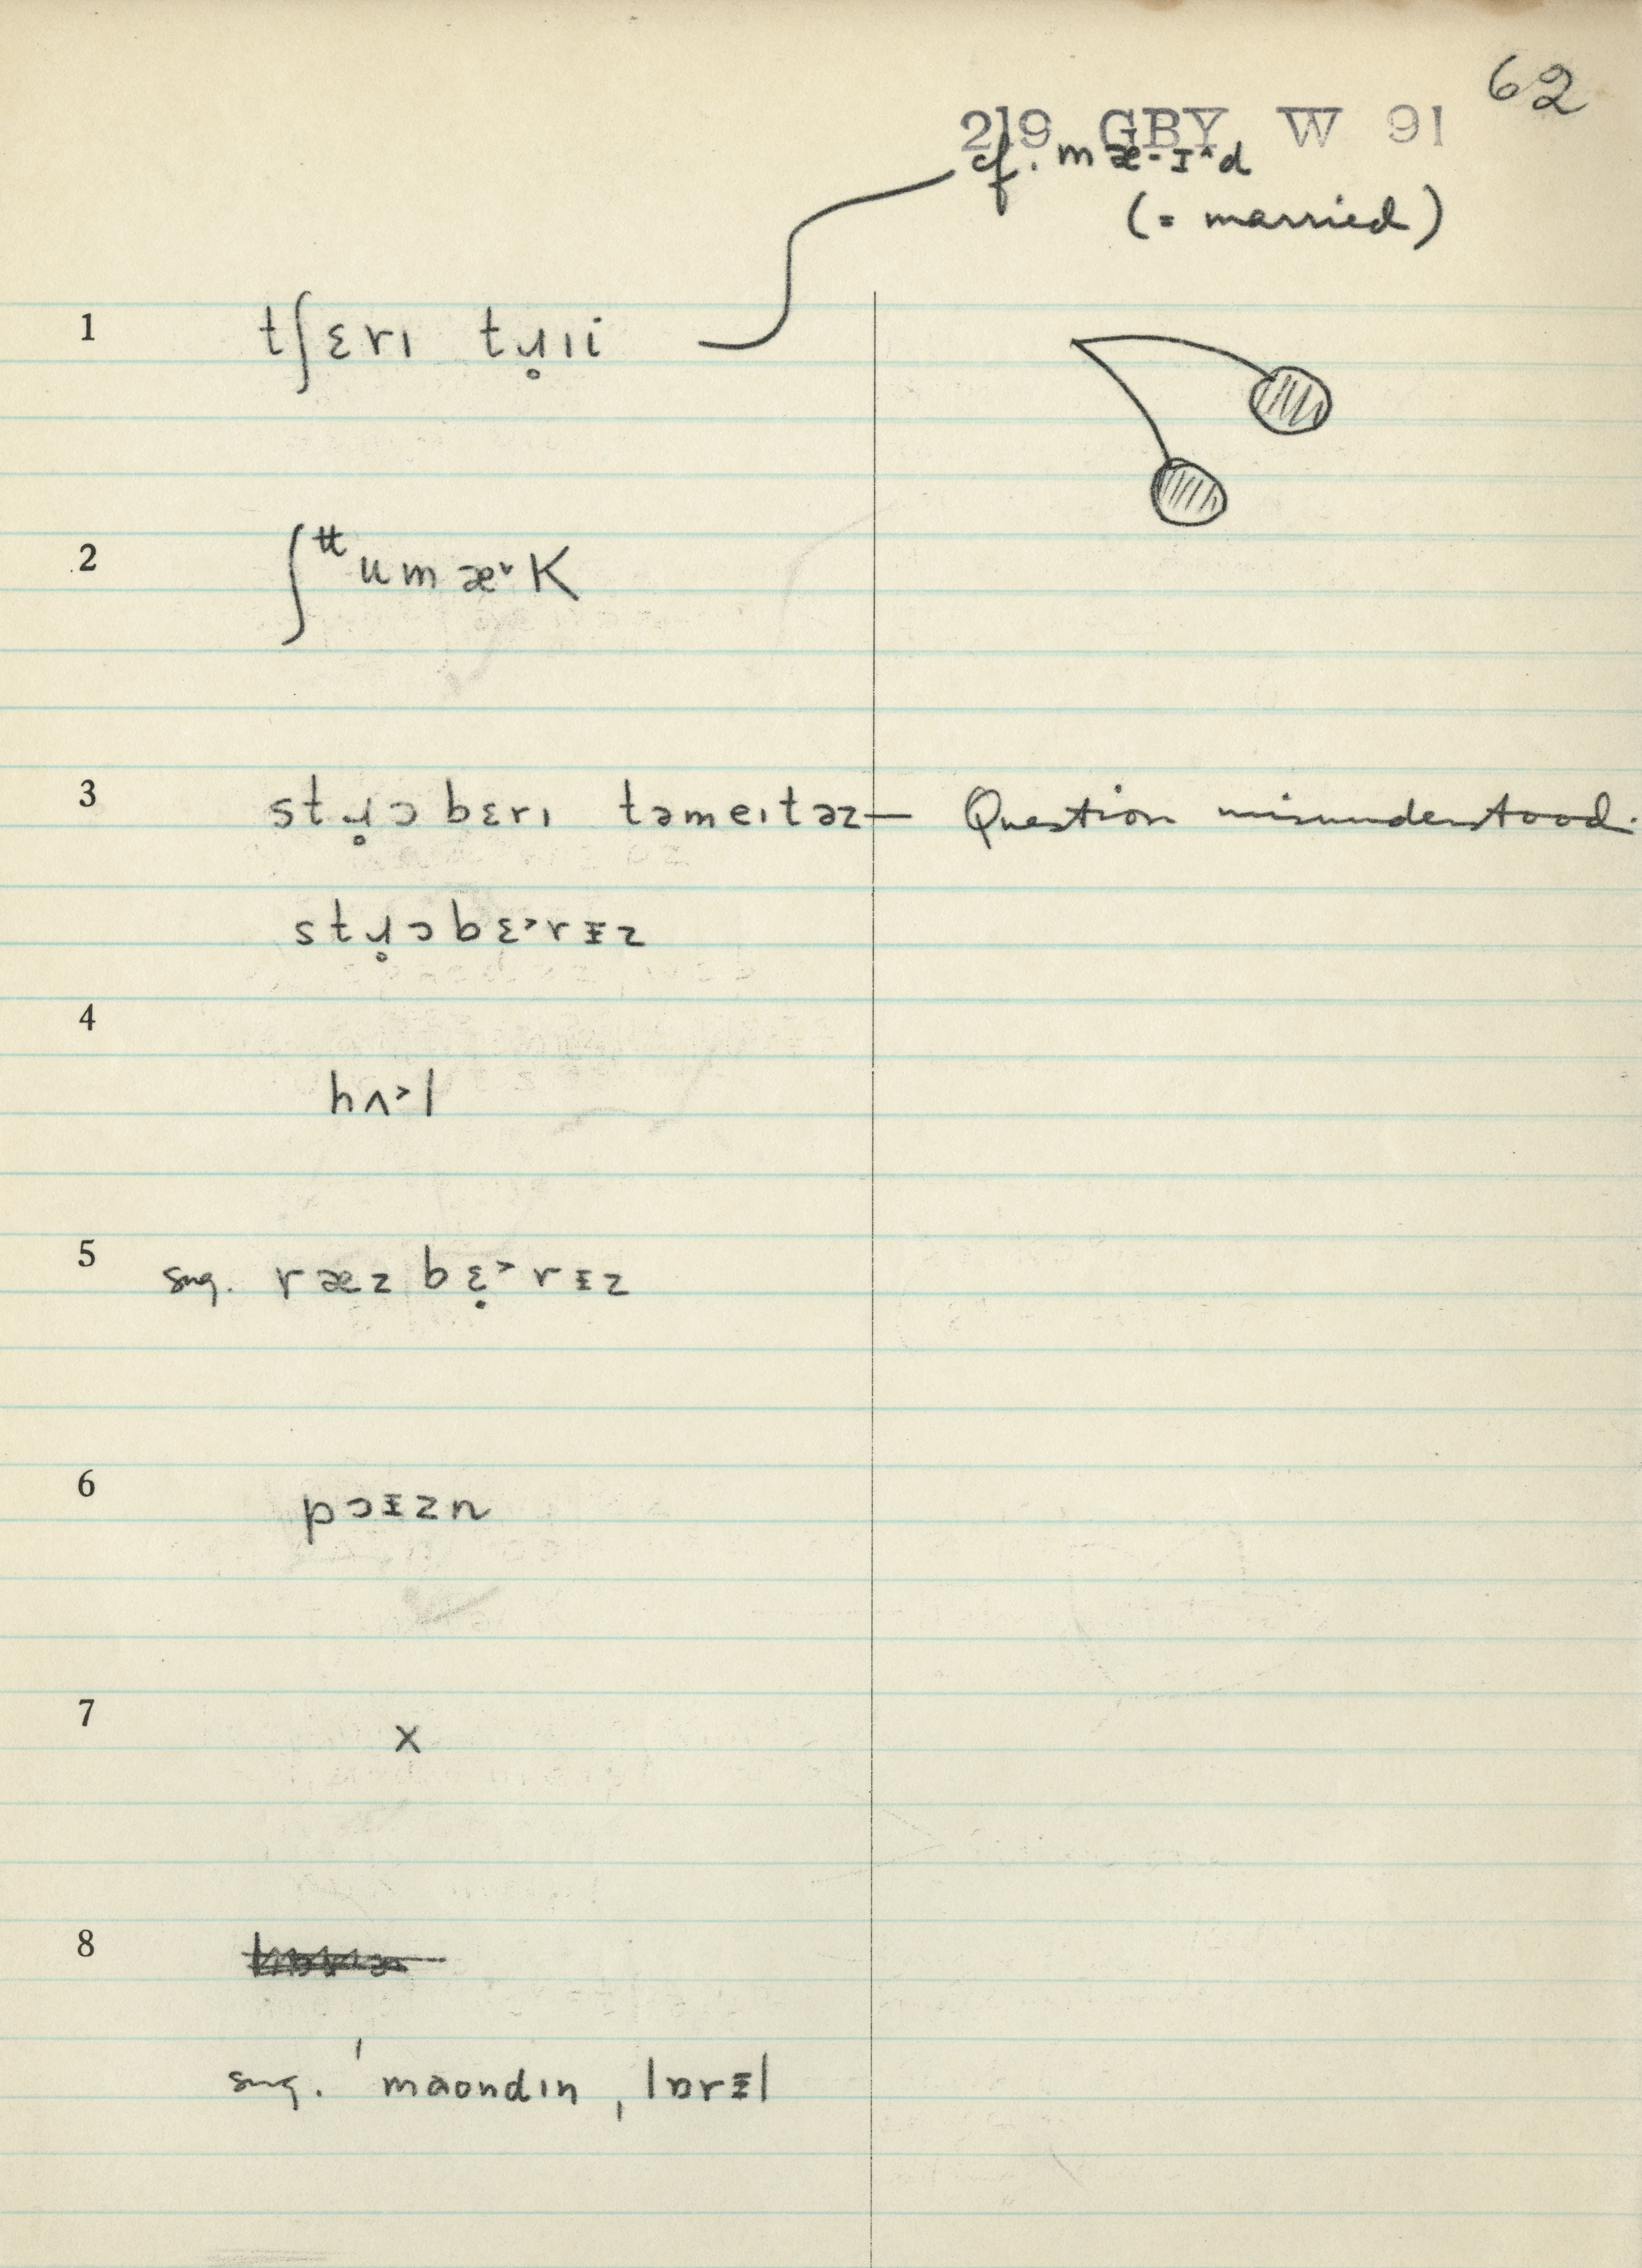 62
219 GBY W 91
cf. mæ-ɪ^d
(= married)
1 tʃɛrı tɹ̥ıi
2 ʃᵗᵗumæ˅K
3 stɹ̥ɔbɛrı təmeıtəz — Question misunderstood.
stɹ̥ɔbɛ˃rɪ̵z
4
hʌ˃l
5 sug. ræzbɛ̣˃rɪ̵z
6 pɔɪ̵zn
7 x
8
sug. ˈmaondın ˌlɒrɪ̵l